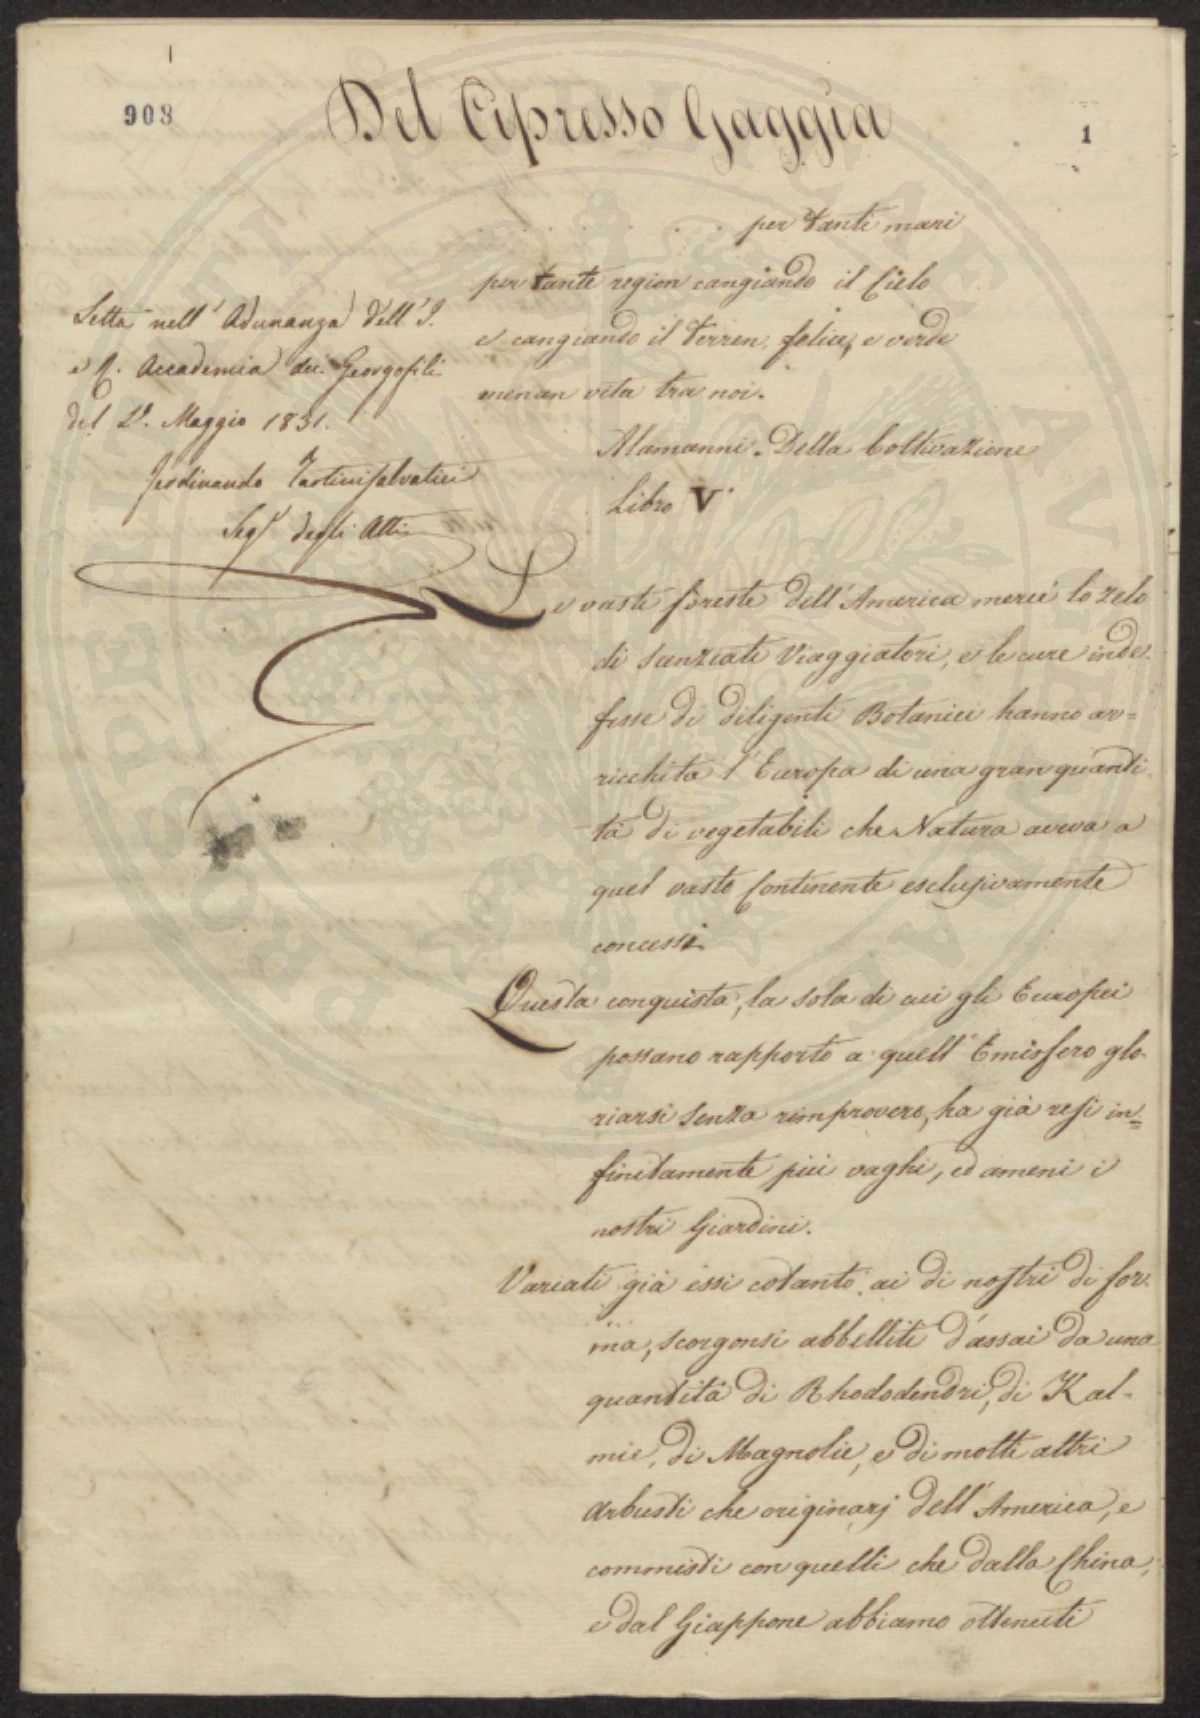 908
Del Cipresso Gaggia
1
per tanti mari
per tante region cangiando il Cielo
e cangiando il terren, felice, e verde
menan vita tra noi.
Alamanni. Della Coltivazione
Libro V.
Letta nell' Adunanza dell' I.
e R. Accademia dei Georgofili
del 1º. Maggio 1831.
Ferdinando Tartini Salvatici
Seg.º degli Atti
Le vaste foreste dell' America mercé lo zelo
di scenziati Viaggiatori, e le cure inde-
fesse di diligenti Botanici hanno ar=
ricchita l'Europa di una gran quanti
tà di vegetabili che Natura aveva a
quel vasto Continente esclusivamente
concessi.
Questa conquista, la sola di cui gli Europei
possano rapporto a quell' Emisfero glo-
riarsi senza rimprovero, ha già resi in=
finitamente più vaghi, ed ameni i
nostri Giardini.
Variati già essi cotanto ai dì nostri di for-
ma, scorgonsi abbelliti d'assai da una
quantità di Rhododendri, di Kal-
mie, di Magnolie, e di molti altri
Arbusti che originarj dell' America, e
commisti con quelli che dalla China,
e dal Giappone abbiamo ottenuti